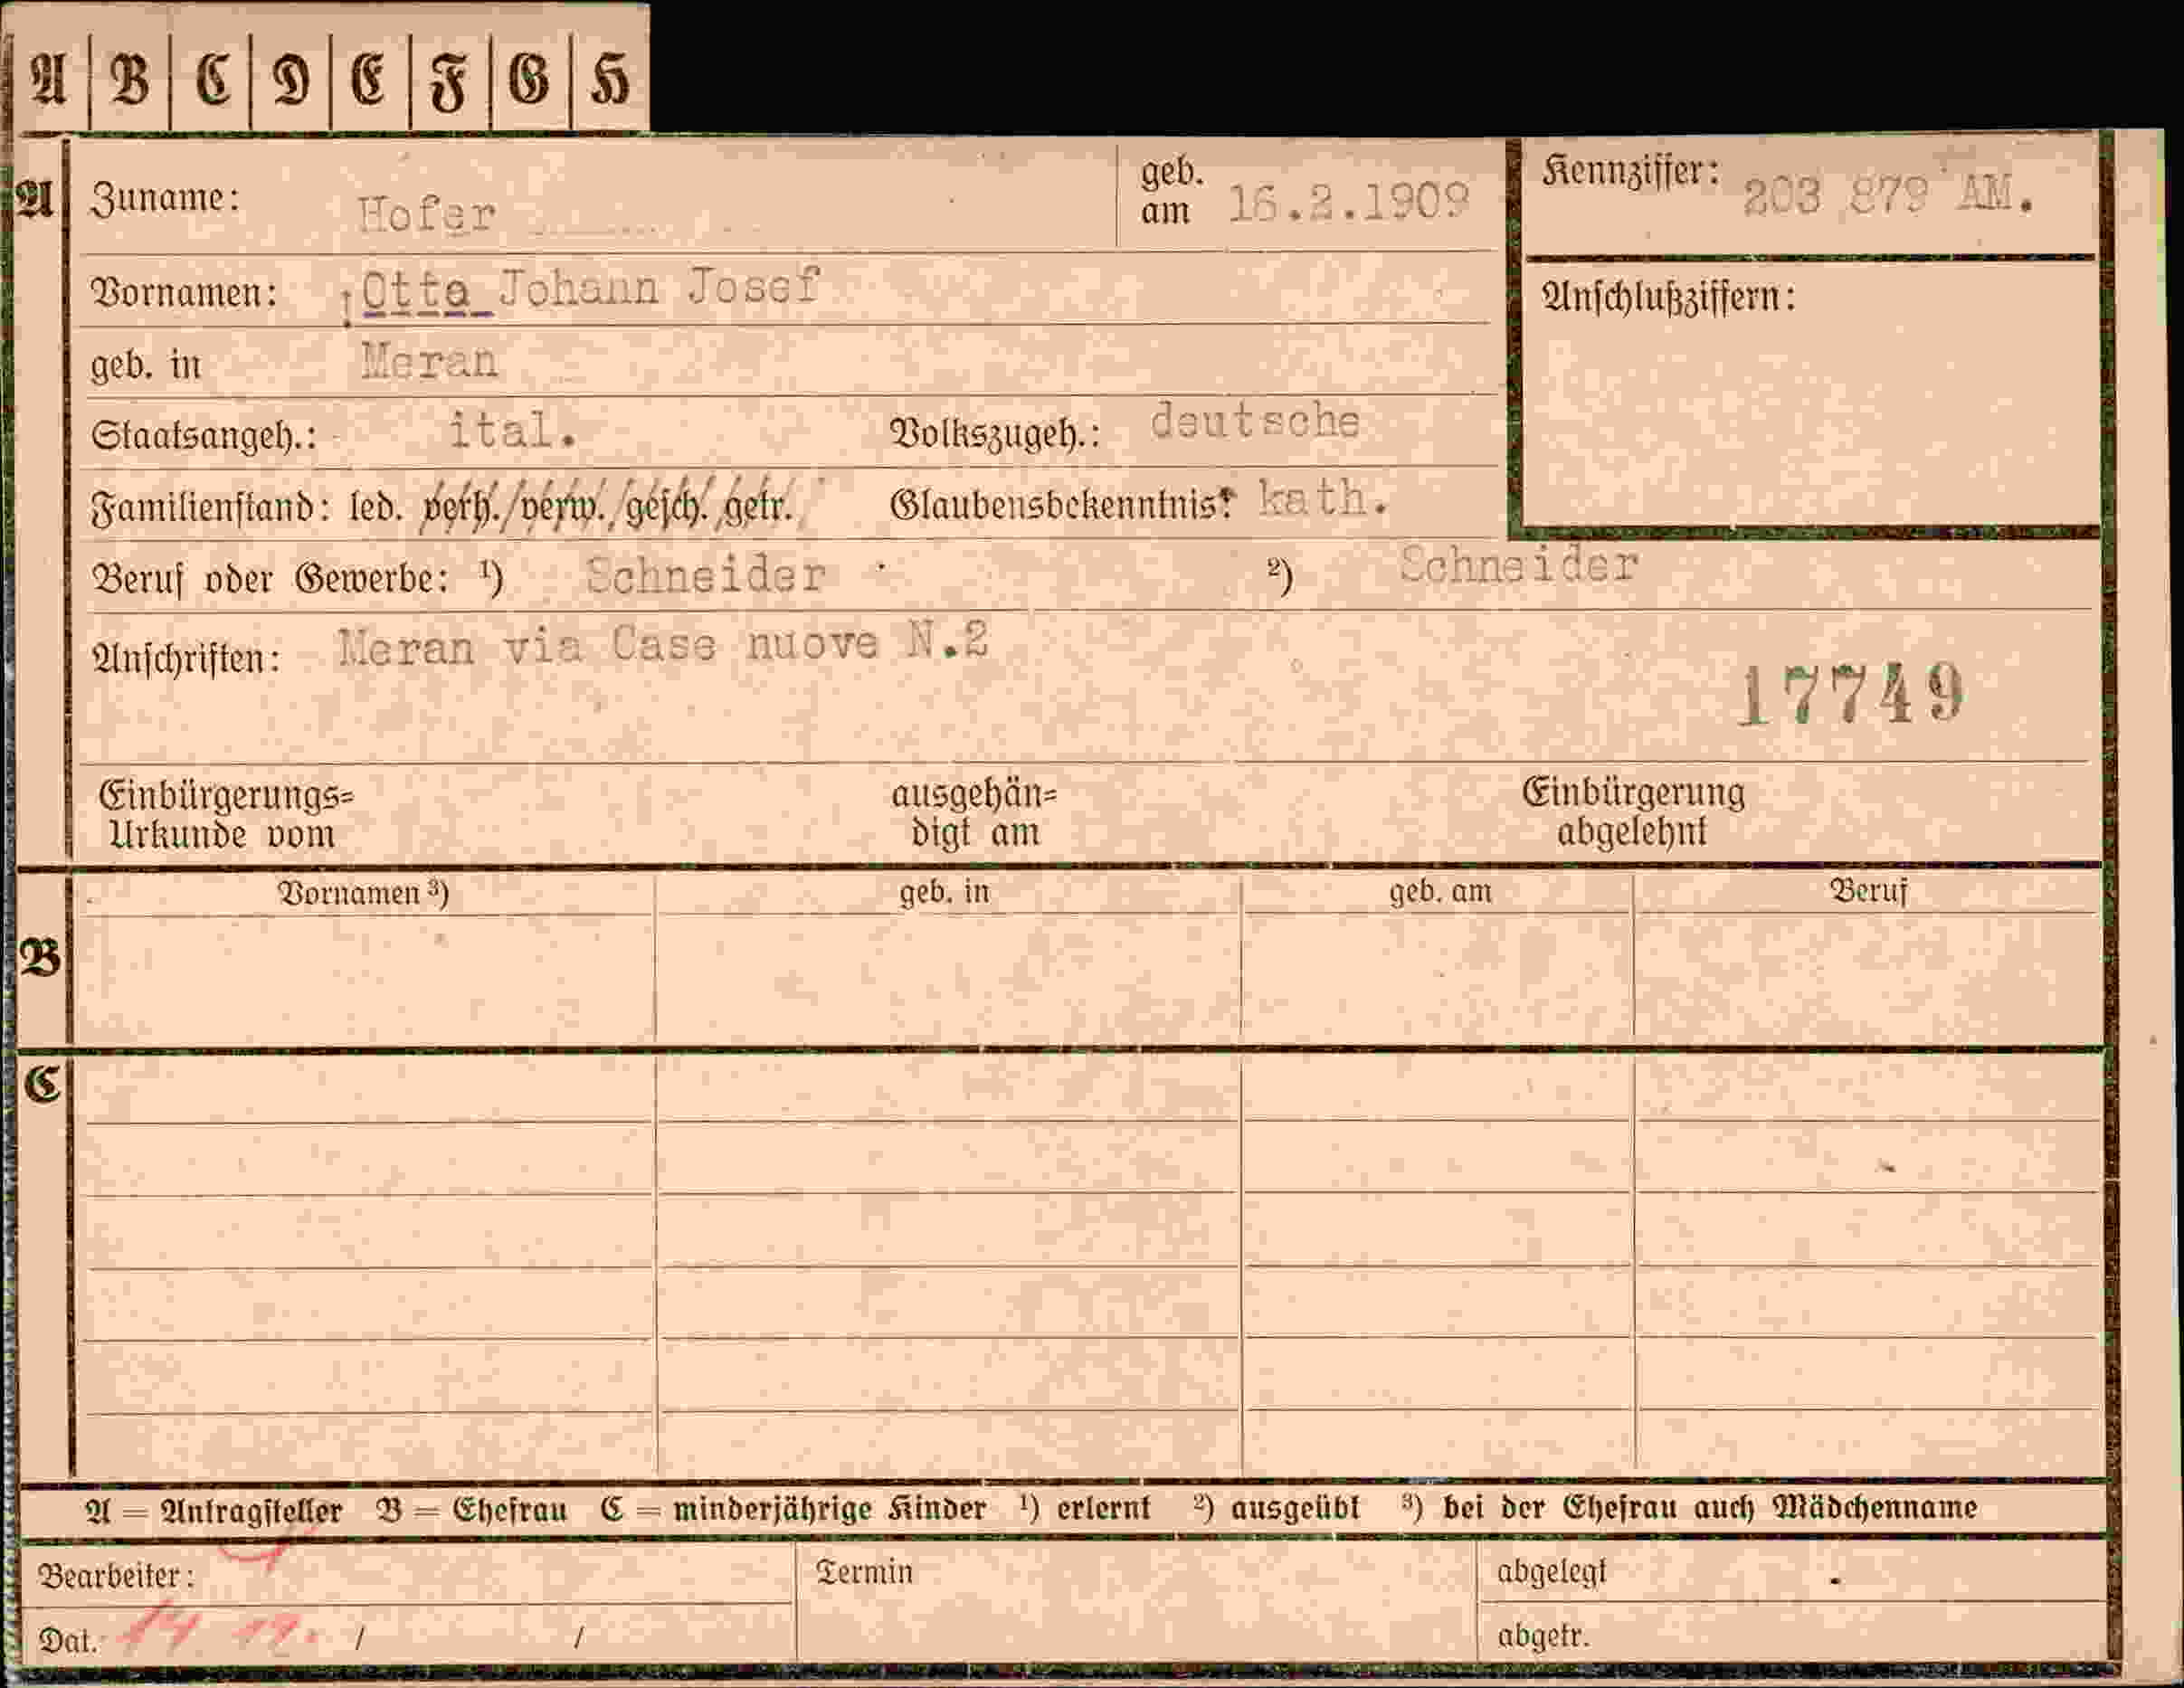 A B C D E F G H
A Zuname: Hofer geb. am 16.2.1909 Kennziffer: 203 879 AM.
Vornamen: Otto Johann Josef Anschlußziffern:
geb. in Meran
Staatsangeh.: ital. Volkszugeh.: deutsche
Familienstand: led. verh./verw./gesch. getr. Glaubensbekenntnis: kath.
Beruf oder Gewerbe: ¹) Schneider ²) Schneider
Anschriften: Meran via Case nuove N.2
17749
Einbürgerungs= ausgehän= Einbürgerung
Urkunde vom digt am abgelehnt
B Vornamen ³) geb. in geb. am Beruf
C
A = Antragsteller B = Ehefrau C = minderjährige Kinder ¹) erlernt ²) ausgeübt ³) bei der Ehefrau auch Mädchenname
Bearbeiter: Termin abgelegt
Dat. / / abgetr.